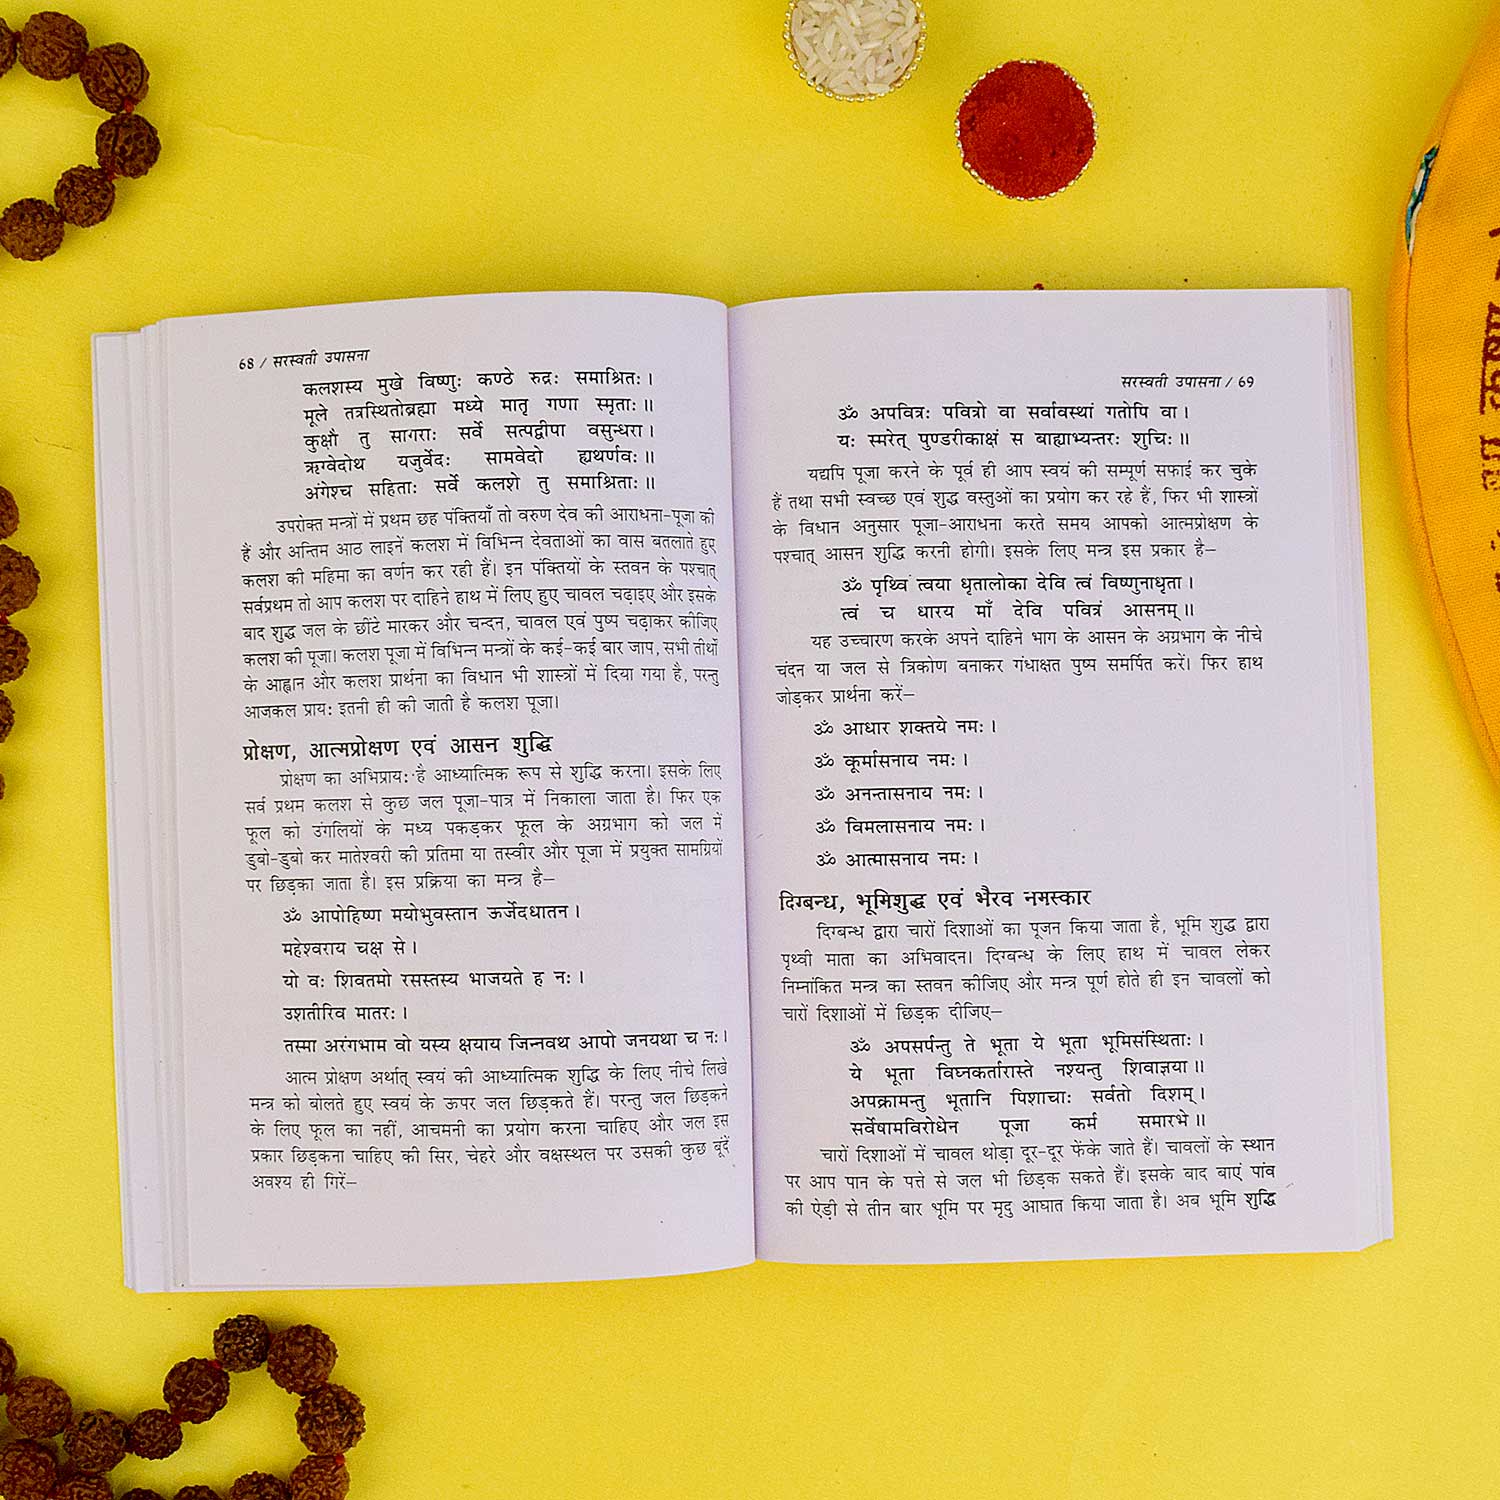 68 / सरस्वती उपासना
कलशस्य मुखे विष्णुः कण्ठे रुद्रः समाश्रितः।
मूले तत्रस्थितोब्रह्मा मध्ये मातृ गणा स्मृताः॥
कुक्षौ तु सागराः सर्वे सत्पद्वीपा वसुन्धरा।
ऋग्वेदोथ यजुर्वेदः सामवेदो ह्यथर्णवः॥
अंगेश्च सहिताः सर्वे कलशे तु समाश्रिताः॥
उपरोक्त मन्त्रों में प्रथम छह पंक्तियाँ तो वरुण देव की आराधना-पूजा की
हैं और अन्तिम आठ लाइनें कलश में विभिन्न देवताओं का वास बतलाते हुए
कलश की महिमा का वर्णन कर रही हैं। इन पंक्तियों के स्तवन के पश्चात्
सर्वप्रथम तो आप कलश पर दाहिने हाथ में लिए हुए चावल चढ़ाइए और इसके
बाद शुद्ध जल के छींटे मारकर और चन्दन, चावल एवं पुष्प चढ़ाकर कीजिए
कलश की पूजा। कलश पूजा में विभिन्न मन्त्रों के कई-कई बार जाप, सभी तीर्थों
के आह्वान और कलश प्रार्थना का विधान भी शास्त्रों में दिया गया है, परन्तु
आजकल प्राय: इतनी ही की जाती है कलश पूजा।
प्रोक्षण, आत्मप्रोक्षण एवं आसन शुद्धि
प्रोक्षण का अभिप्राय: है आध्यात्मिक रूप से शुद्धि करना। इसके लिए
सर्व प्रथम कलश से कुछ जल पूजा-पात्र में निकाला जाता है। फिर एक
फूल को उंगलियों के मध्य पकड़कर फूल के अग्रभाग को जल में
डुबो-डुबो कर मातेश्वरी की प्रतिमा या तस्वीर और पूजा में प्रयुक्त सामग्रियों
पर छिड़का जाता है। इस प्रक्रिया का मन्त्र है—
ॐ आपोहिष्ण मयोभुवस्तान ऊर्जेदधातन।
महेश्वराय चक्ष से।
यो वः शिवतमो रसस्तस्य भाजयते ह नः।
उशतीरिव मातरः।
तस्मा अरंगभाम वो यस्य क्षयाय जिन्नवथ आपो जनयथा च नः।
आत्म प्रोक्षण अर्थात् स्वयं की आध्यात्मिक शुद्धि के लिए नीचे लिखे
मन्त्र को बोलते हुए स्वयं के ऊपर जल छिड़कते हैं। परन्तु जल छिड़कने
के लिए फूल का नहीं, आचमनी का प्रयोग करना चाहिए और जल इस
प्रकार छिड़कना चाहिए की सिर, चेहरे और वक्षस्थल पर उसकी कुछ बूंदें
अवश्य ही गिरें—
सरस्वती उपासना / 69
ॐ अपवित्रः पवित्रो वा सर्वावस्थां गतोपि वा।
यः स्मरेत् पुण्डरीकाक्षं स बाह्याभ्यन्तरः शुचिः॥
यद्यपि पूजा करने के पूर्व ही आप स्वयं की सम्पूर्ण सफाई कर चुके
हैं तथा सभी स्वच्छ एवं शुद्ध वस्तुओं का प्रयोग कर रहे हैं, फिर भी शास्त्रों
के विधान अनुसार पूजा-आराधना करते समय आपको आत्मप्रोक्षण के
पश्चात् आसन शुद्धि करनी होगी। इसके लिए मन्त्र इस प्रकार है—
ॐ पृथ्विं त्वया धृतालोका देवि त्वं विष्णुनाधृता।
त्वं च धारय माँ देवि पवित्रं आसनम्॥
यह उच्चारण करके अपने दाहिने भाग के आसन के अग्रभाग के नीचे
चंदन या जल से त्रिकोण बनाकर गंधाक्षत पुष्प समर्पित करें। फिर हाथ
जोड़कर प्रार्थना करें—
ॐ आधार शक्तये नमः।
ॐ कूर्मासनाय नमः।
ॐ अनन्तासनाय नमः।
ॐ विमलासनाय नमः।
ॐ आत्मासनाय नमः।
दिग्बन्ध, भूमिशुद्ध एवं भैरव नमस्कार
दिग्बन्ध द्वारा चारों दिशाओं का पूजन किया जाता है, भूमि शुद्ध द्वारा
पृथ्वी माता का अभिवादन। दिग्बन्ध के लिए हाथ में चावल लेकर
निम्नांकित मन्त्र का स्तवन कीजिए और मन्त्र पूर्ण होते ही इन चावलों को
चारों दिशाओं में छिड़क दीजिए—
ॐ अपसर्पन्तु ते भूता ये भूता भूमिसंस्थिताः।
ये भूता विघ्नकर्तारास्ते नश्यन्तु शिवाज्ञया॥
अपक्रामन्तु भूतानि पिशाचाः सर्वतो दिशम्।
सर्वेषामविरोधेन पूजा कर्म समारभे॥
चारों दिशाओं में चावल थोड़ा दूर-दूर फेंके जाते हैं। चावलों के स्थान
पर आप पान के पत्ते से जल भी छिड़क सकते हैं। इसके बाद बाएं पांव
की ऐड़ी से तीन बार भूमि पर मृदु आघात किया जाता है। अब भूमि शुद्धि